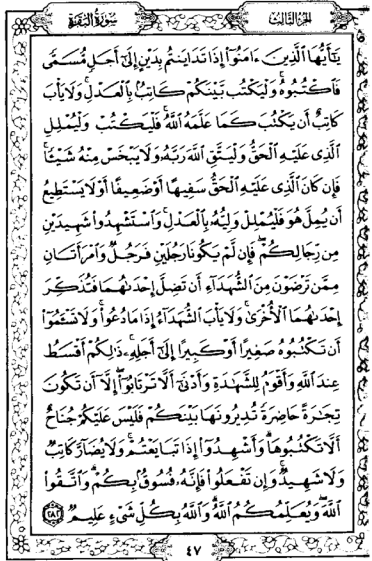 الجزء الثالث سورة البقرة
يَٰٓأَيُّهَا ٱلَّذِينَ ءَامَنُوٓا۟ إِذَا تَدَايَنتُم بِدَيْنٍ إِلَىٰٓ أَجَلٍ مُّسَمًّى
فَٱكْتُبُوهُ ۚ وَلْيَكْتُب بَّيْنَكُمْ كَاتِبٌۢ بِٱلْعَدْلِ ۚ وَلَا يَأْبَ
كَاتِبٌ أَن يَكْتُبَ كَمَا عَلَّمَهُ ٱللَّهُ ۚ فَلْيَكْتُبْ وَلْيُمْلِلِ
ٱلَّذِى عَلَيْهِ ٱلْحَقُّ وَلْيَتَّقِ ٱللَّهَ رَبَّهُۥ وَلَا يَبْخَسْ مِنْهُ شَيْـًٔا ۚ
فَإِن كَانَ ٱلَّذِى عَلَيْهِ ٱلْحَقُّ سَفِيهًا أَوْ ضَعِيفًا أَوْ لَا يَسْتَطِيعُ
أَن يُمِلَّ هُوَ فَلْيُمْلِلْ وَلِيُّهُۥ بِٱلْعَدْلِ ۚ وَٱسْتَشْهِدُوا۟ شَهِيدَيْنِ
مِن رِّجَالِكُمْ ۖ فَإِن لَّمْ يَكُونَا رَجُلَيْنِ فَرَجُلٌ وَٱمْرَأَتَانِ
مِمَّن تَرْضَوْنَ مِنَ ٱلشُّهَدَآءِ أَن تَضِلَّ إِحْدَىٰهُمَا فَتُذَكِّرَ
إِحْدَىٰهُمَا ٱلْأُخْرَىٰ ۚ وَلَا يَأْبَ ٱلشُّهَدَآءُ إِذَا مَا دُعُوا۟ ۚ وَلَا تَسْـَٔمُوٓا۟
أَن تَكْتُبُوهُ صَغِيرًا أَوْ كَبِيرًا إِلَىٰٓ أَجَلِهِۦ ۚ ذَٰلِكُمْ أَقْسَطُ
عِندَ ٱللَّهِ وَأَقْوَمُ لِلشَّهَٰدَةِ وَأَدْنَىٰٓ أَلَّا تَرْتَابُوٓا۟ ۖ إِلَّآ أَن تَكُونَ
تِجَٰرَةً حَاضِرَةً تُدِيرُونَهَا بَيْنَكُمْ فَلَيْسَ عَلَيْكُمْ جُنَاحٌ
أَلَّا تَكْتُبُوهَا ۗ وَأَشْهِدُوٓا۟ إِذَا تَبَايَعْتُمْ ۚ وَلَا يُضَآرَّ كَاتِبٌ
وَلَا شَهِيدٌ ۚ وَإِن تَفْعَلُوا۟ فَإِنَّهُۥ فُسُوقٌۢ بِكُمْ ۗ وَٱتَّقُوا۟
ٱللَّهَ ۖ وَيُعَلِّمُكُمُ ٱللَّهُ ۗ وَٱللَّهُ بِكُلِّ شَىْءٍ عَلِيمٌ ٢٨٢
٤٧